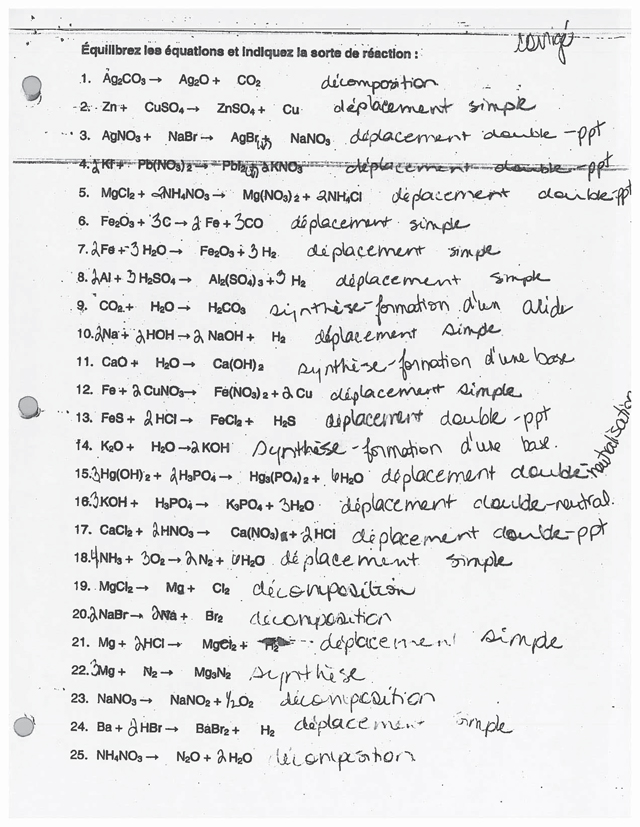 corrigé
Équilibrez les équations et indiquez la sorte de réaction :
1. Ag₂CO₃ → Ag₂O + CO₂ décomposition
2. Zn + CuSO₄ → ZnSO₄ + Cu déplacement simple
3. AgNO₃ + NaBr → AgBr(s) + NaNO₃ déplacement double - ppt
4. 2KI + Pb(NO₃)₂ → PbI₂(s) 2KNO₃ déplacement double - ppt
5. MgCl₂ + 2NH₄NO₃ → Mg(NO₃)₂ + 2NH₄Cl déplacement double-ppt
6. Fe₂O₃ + 3C → 2Fe + 3CO déplacement simple
7. 2Fe + 3H₂O → Fe₂O₃ + 3H₂ déplacement simple
8. 2Al + 3H₂SO₄ → Al₂(SO₄)₃ + 3H₂ déplacement simple
9. CO₂ + H₂O → H₂CO₃ synthèse-formation d'un acide
10. 2Na + 2HOH → 2NaOH + H₂ déplacement simple
11. CaO + H₂O → Ca(OH)₂ synthèse-formation d'une base
12. Fe + 2CuNO₃ → Fe(NO₃)₂ + 2Cu déplacement simple
13. FeS + 2HCl → FeCl₂ + H₂S déplacement double - ppt
14. K₂O + H₂O → 2KOH synthèse-formation d'une base.
15. 3Hg(OH)₂ + 2H₃PO₄ → Hg₃(PO₄)₂ + 6H₂O déplacement double-neutralisation
16. 3KOH + H₃PO₄ → K₃PO₄ + 3H₂O déplacement double-neutral.
17. CaCl₂ + 2HNO₃ → Ca(NO₃)₂ + 2HCl déplacement double-ppt
18. 4NH₃ + 3O₂ → 2N₂ + 6H₂O déplacement simple
19. MgCl₂ → Mg + Cl₂ décomposition
20. 2NaBr → 2Na + Br₂ décomposition
21. Mg + 2HCl → MgCl₂ + H₂ déplacement simple
22. 3Mg + N₂ → Mg₃N₂ synthèse
23. NaNO₃ → NaNO₂ + ½O₂ décomposition
24. Ba + 2HBr → BaBr₂ + H₂ déplacement simple
25. NH₄NO₃ → N₂O + 2H₂O décomposition